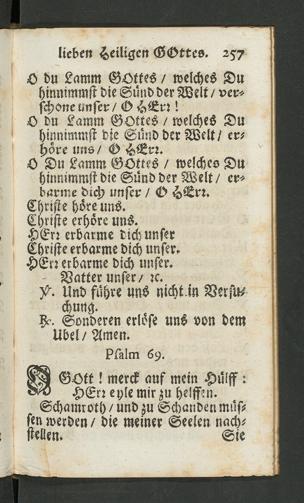 lieben Heiligen GOttes. 257
O du Lamm GOttes / welches Du
hinnimmst die Sünd der Welt / ver-
schone unser / O HErr!
O du Lamm GOttes / welches Du
hinnimmst die Sünd der Welt / er-
höre uns / O HErr.
O Du Lamm GOttes / welches Du
hinnimmst die Sünd der Welt / er-
barme dich unser / O HErr.
Christe höre uns.
Christe erhöre uns.
HErr erbarme dich unser
Christe erbarme dich unser.
HErr erbarme dich unser.
Vatter unser / ꝛc.
℣. Und führe uns nicht in Versu-
chung.
℟. Sonderen erlöse uns von dem
Ubel / Amen.
Psalm 69.
O GOtt! merck auf mein Hülff:
HErr eyle mir zu helffen.
Schamroth / und zu Schanden müs-
sen werden / die meiner Seelen nach-
stellen. Sie